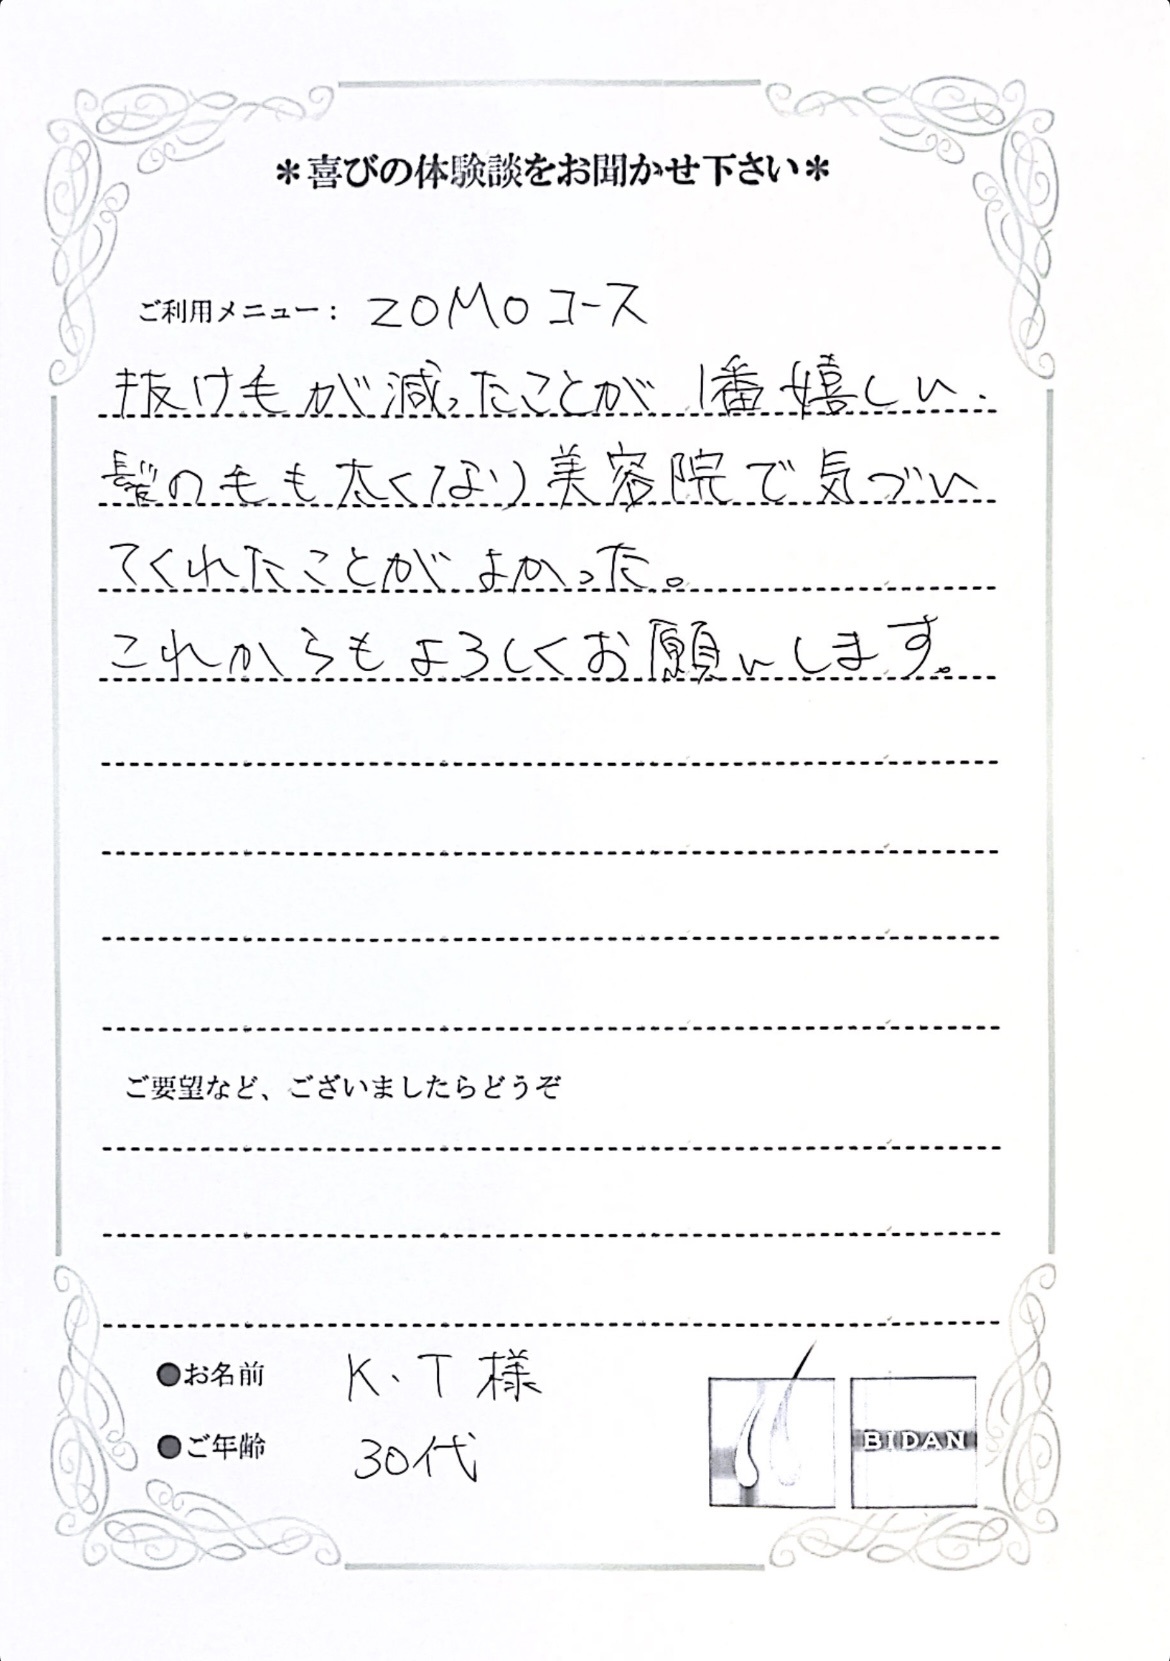 ＊喜びの体験談をお聞かせ下さい＊
ご利用メニュー： ZOMOコース
抜け毛が減ったことが1番嬉しい.
髪の毛も太くなり美容院で気づい
てくれたことがよかった。
これからもよろしくお願いします。
ご要望など、ございましたらどうぞ
●お名前 K.T様
●ご年齢 30代
BIDAN